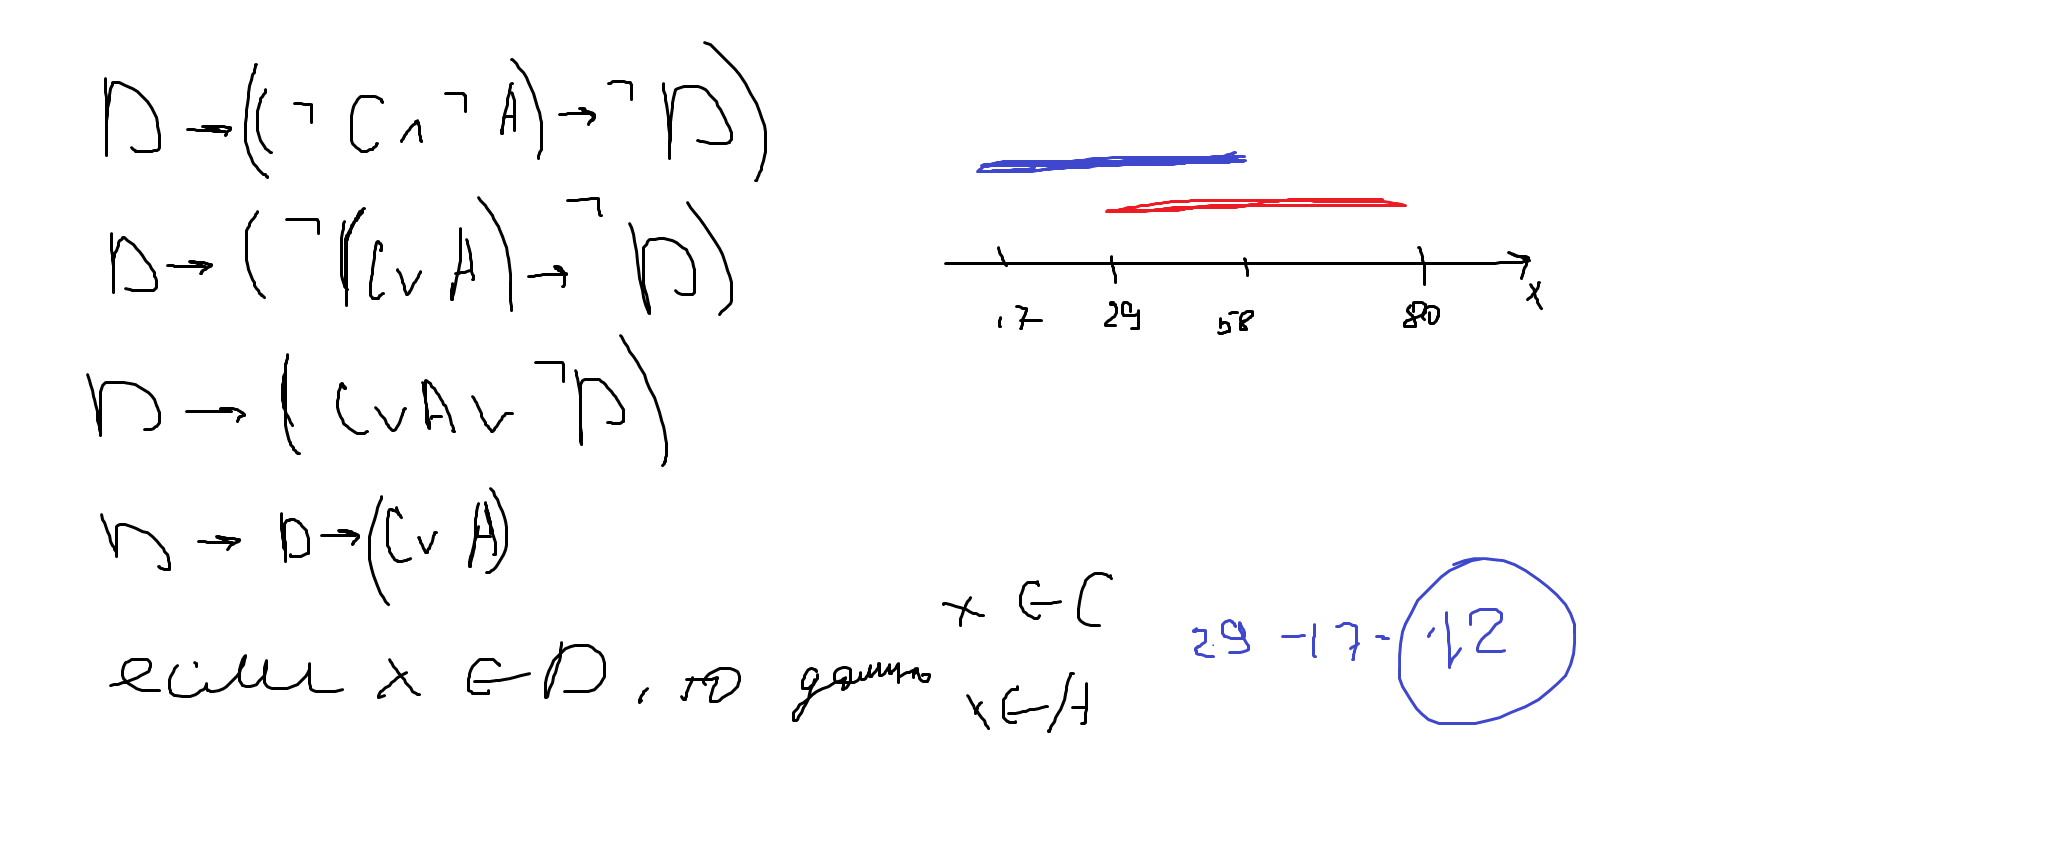 D → ((¬ C ∧ ¬ A) → ¬ D)
D → (¬ (C ∨ A) → ¬ D)
D → (C ∨ A ∨ ¬ D)
D → D → (C ∨ A)
если x ∈ D, то
x ∈ C
x ∈ A
17 29 58 80 x
29 - 17 = 12